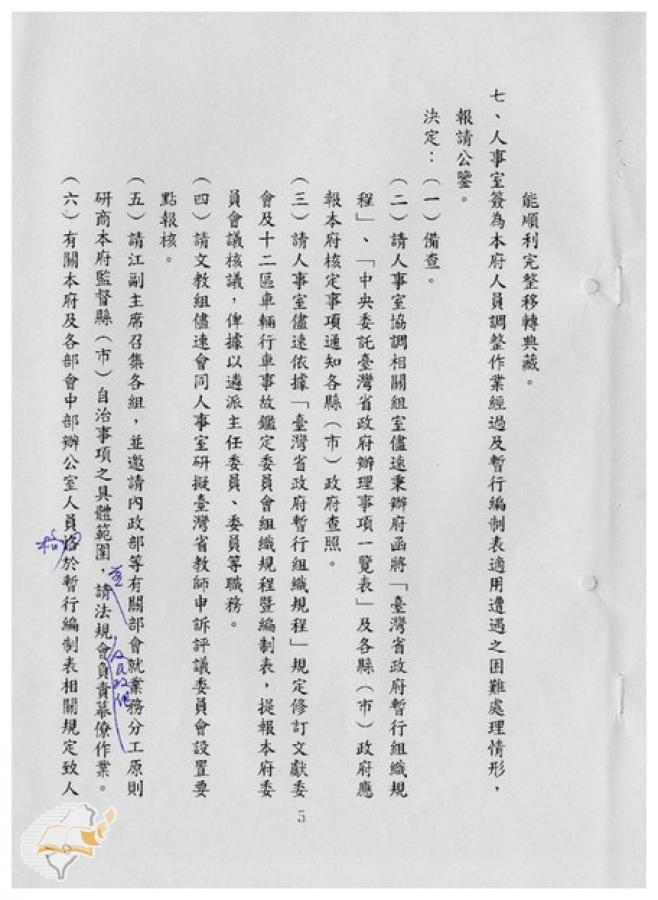 能順利完整移轉典藏。
七、人事室簽為本府人員調整作業經過及暫行編制表適用遭遇之困難處理情形，
報請公鑒。
決定：（一）備查。
（二）請人事室協調相關組室儘速秉辦府函將「臺灣省政府暫行組織規
程」、「中央委託臺灣省政府辦理事項一覽表」及各縣（市）政府應
報本府核定事項通知各縣（市）政府查照。
（三）請人事室儘速依據「臺灣省政府暫行組織規程」規定修訂文獻委
會及十二區車輛行車事故鑑定委員會組織規程暨編制表，提報本府委
員會議核議，俾據以遴派主任委員、委員等職務。
（四）請文教組儘速會同人事室研擬臺灣省教師申訴評議委員會設置要
點報核。
（五）請江副主席召集各組，並邀請內政部等有關部會就業務分工原則
研商本府監督縣（市）自治事項之具體範圍，請法規會負責幕僚作業。
及民政組
（六）有關本府及各部會中部辦公室人員恪於暫行編制表相關規定致人
格
5